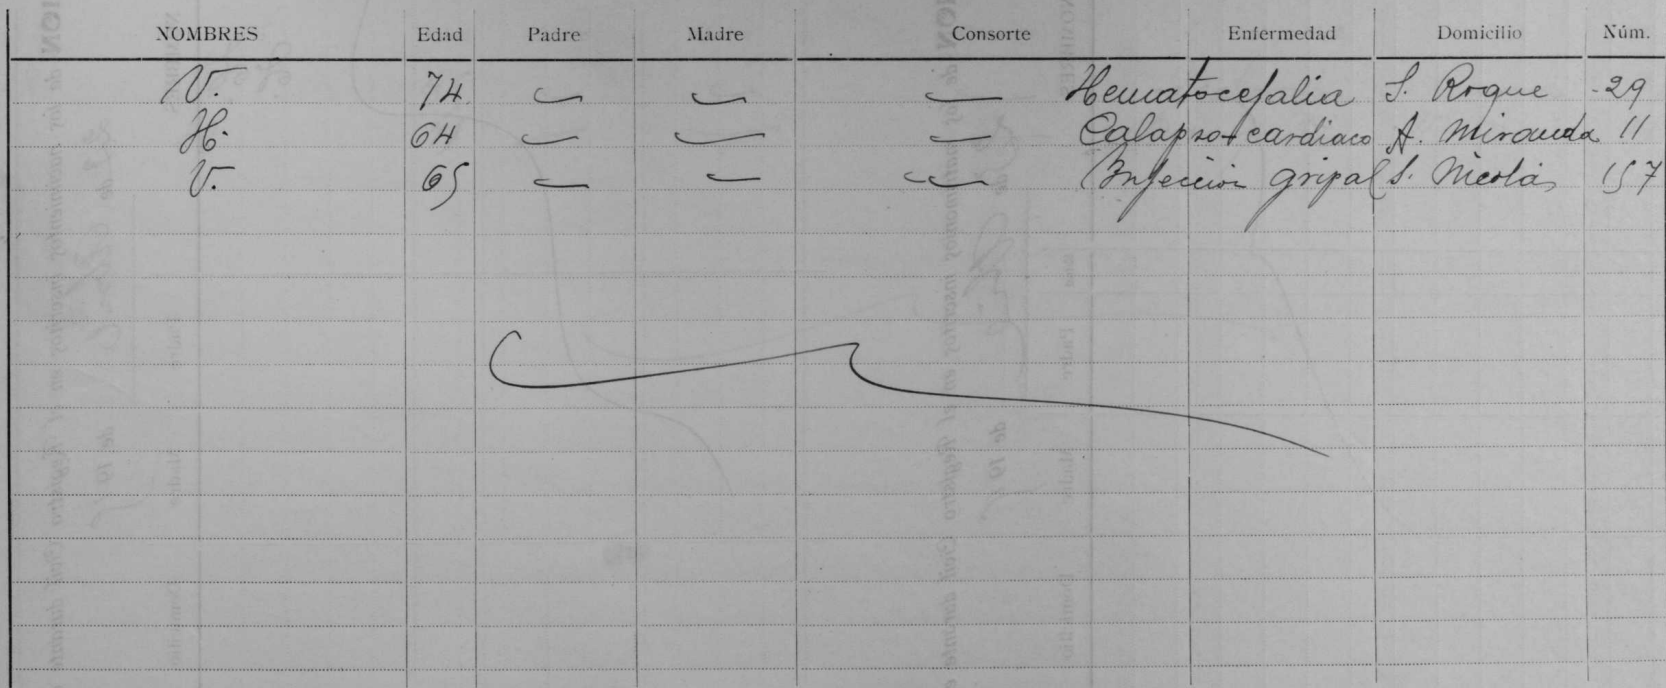 NOMBRES Edad Padre Madre Consorte Enfermedad Domicilio Núm.
V. 74 — — — Hematocefalia S. Roque - 29
H. 64 — — — Calapso cardiaco A. Miranda 11
V. 65 — — — Infección gripal S. Nicolás 157